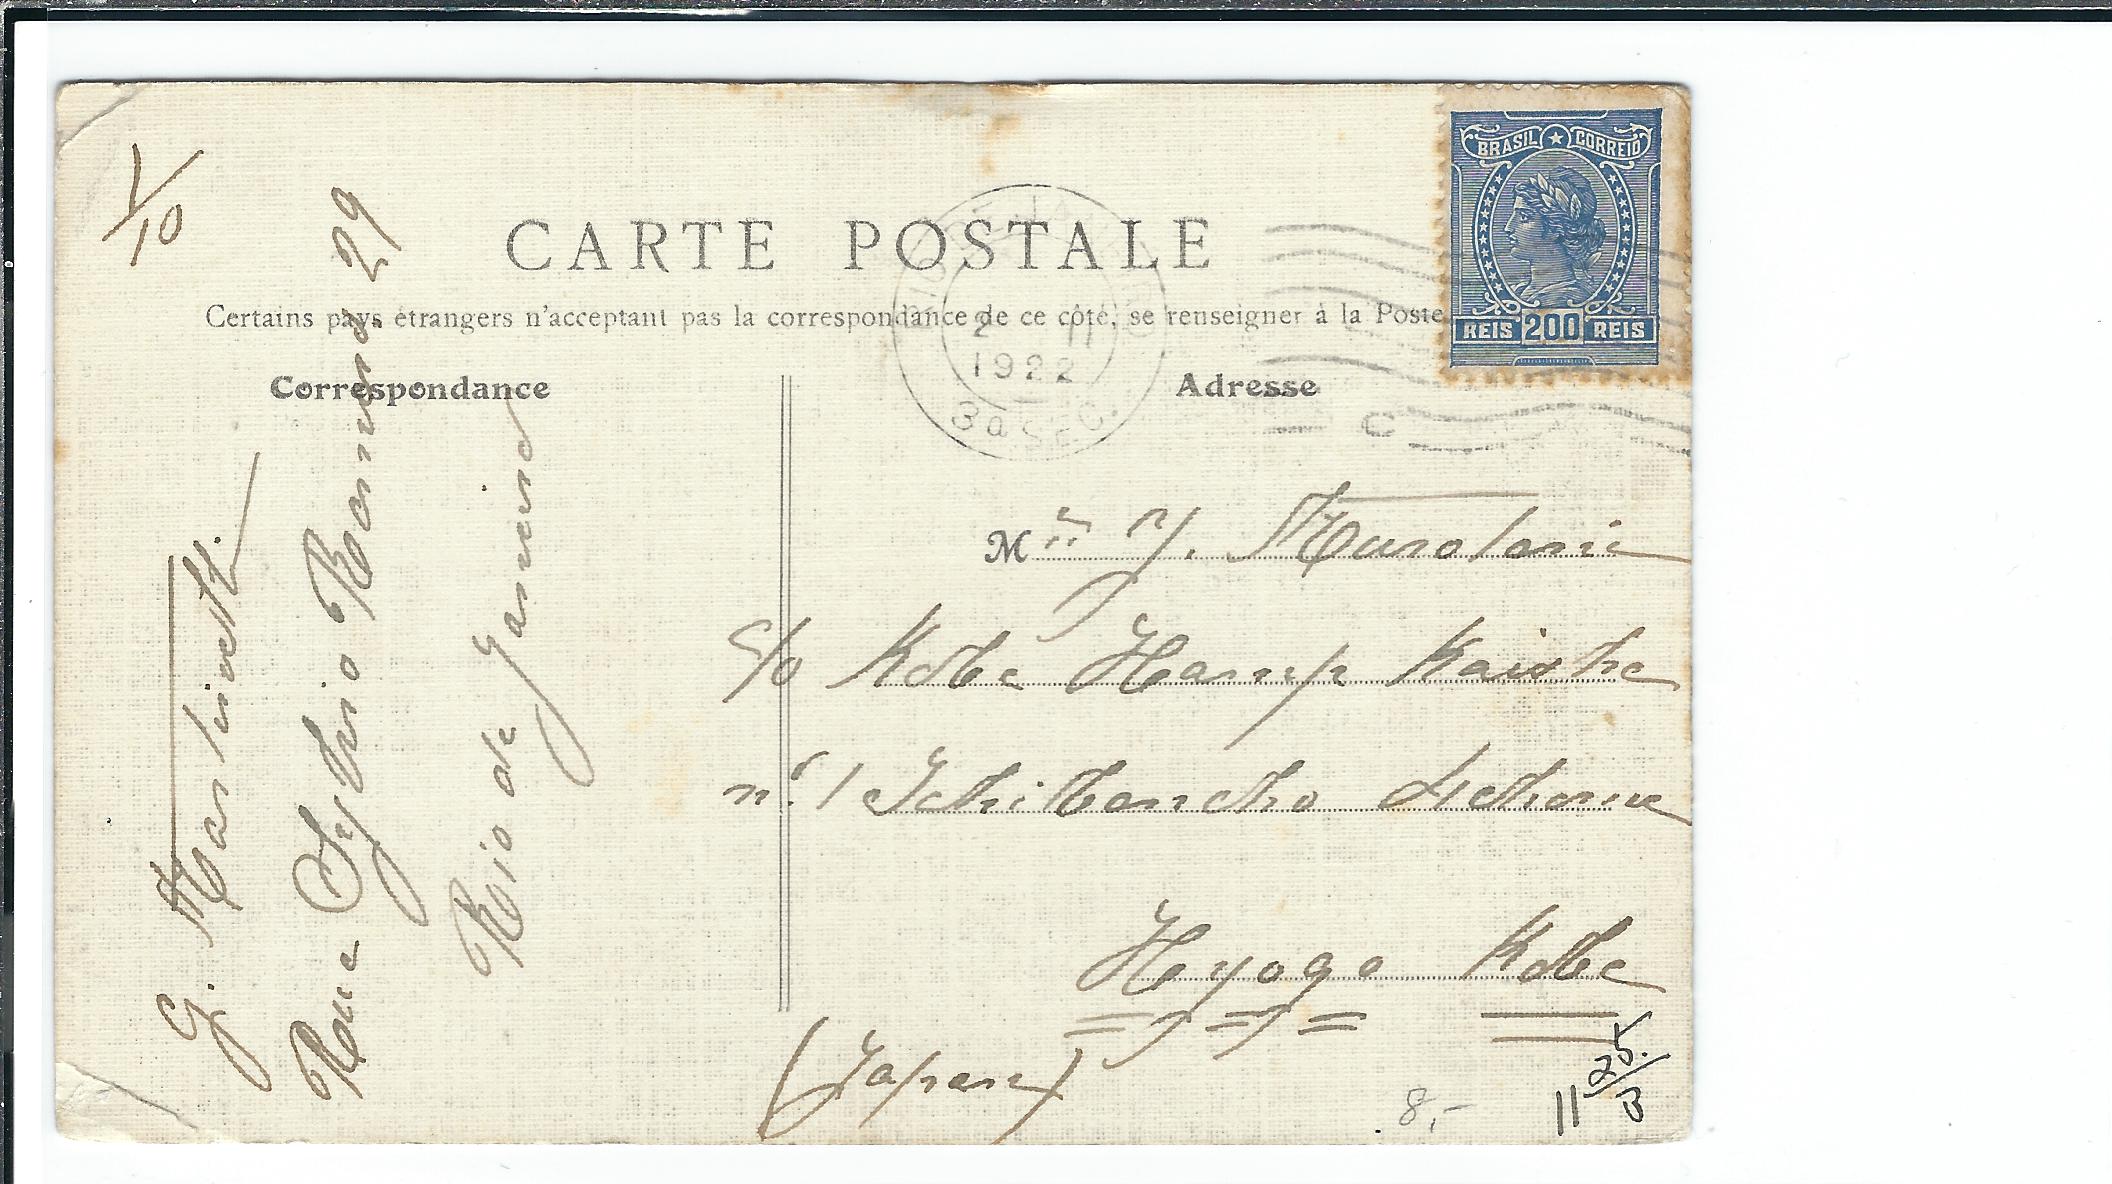 BRASIL CORREIO
REIS 200 REIS
CARTE POSTALE
Certains pays étrangers n'acceptant pas la correspondance de ce côté, se renseigner à la Poste
RIO DE JANEIRO
2 11
1922
3a SEC.
C
Correspondance
Adresse
1/10
G. Martinelli
Rua Sylvio Romero 29
Rio de Janeiro
M Y.
c/o Kobe Hemp Kaisha
nº. 1 Ichibancho
Hyogo Kobe
(Japan)
8,-
11 25./3